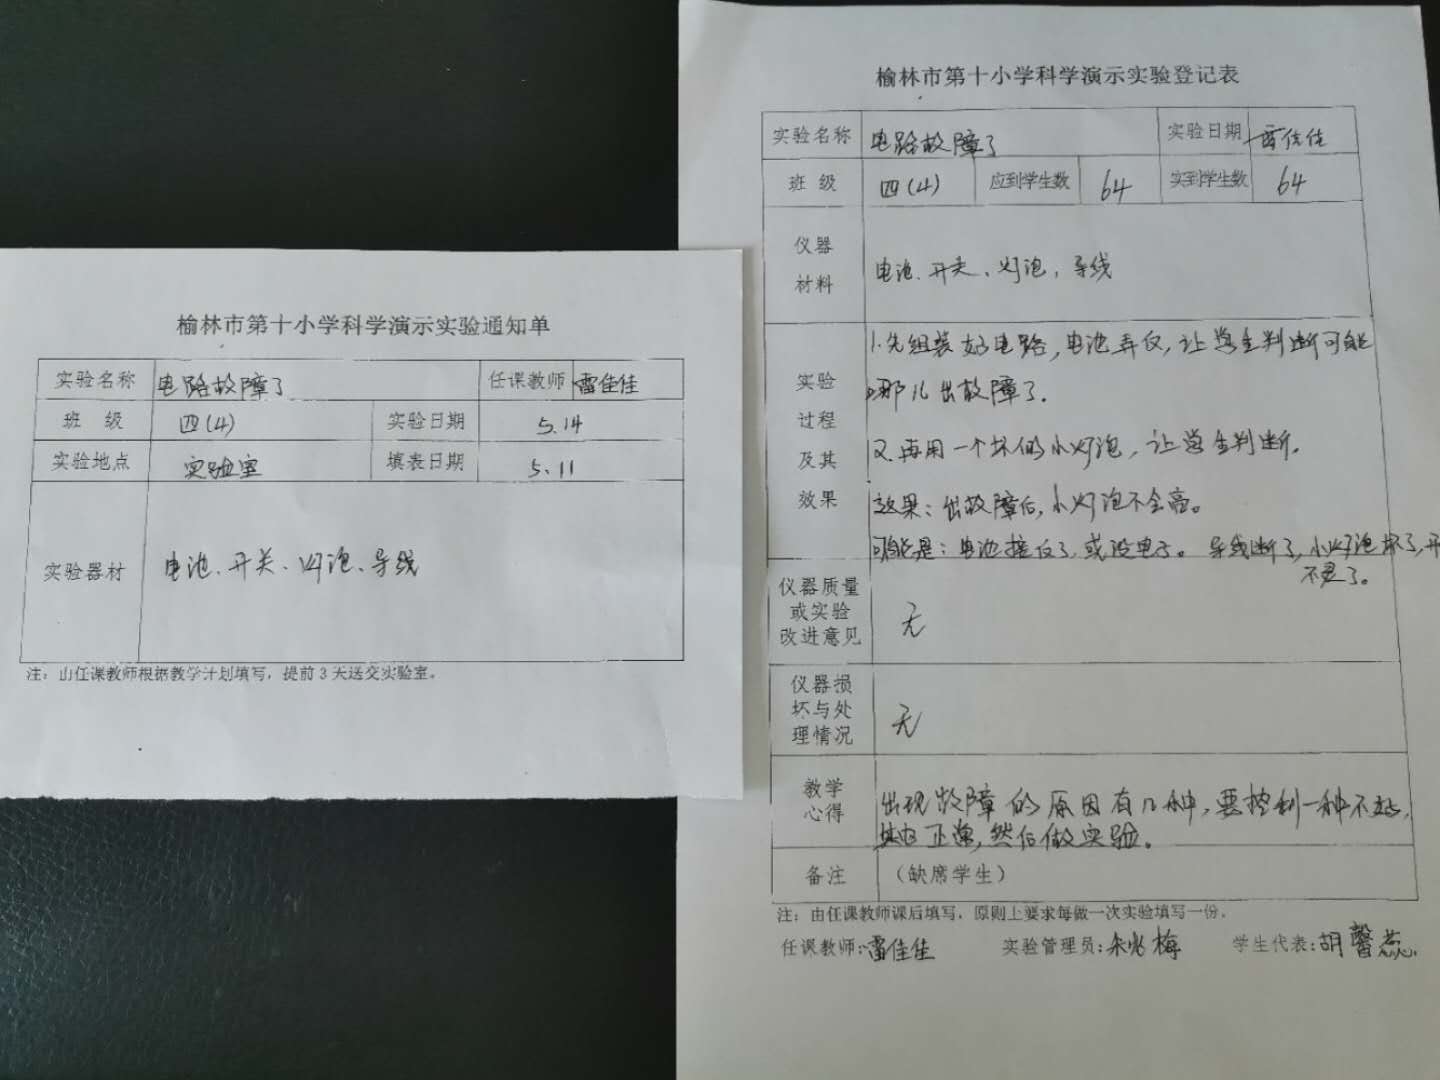 榆林市第十小学科学演示实验通知单
实验名称 电路故障了 任课教师 雷佳佳
班 级 四(4) 实验日期 5.14
实验地点 实验室 填表日期 5.11
实验器材 电池、开关、灯泡、导线
注：由任课教师根据教学计划填写，提前3天送交实验室。
榆林市第十小学科学演示实验登记表
实验名称 电路故障了 实验日期 雷佳佳
班 级 四(4) 应到学生数 64 实到学生数 64
仪器材料 电池、开关、灯泡、导线
实验过程及其效果
1.先组装好电路,电池弄反,让学生判断可能
哪儿出故障了.
2.再用一个坏的小灯泡,让学生判断.
效果：出故障后,小灯泡不会亮。
可能是：电池接反了,或没电了。导线断了,小灯泡坏了,开
不灵了。
仪器质量或实验改进意见 无
仪器损坏与处理情况 无
教学心得
出现故障的原因有几种,要控制一种不变,
其它正常,然后做实验。
备注 （缺席学生）
注：由任课教师课后填写，原则上要求每做一次实验填写一份。
任课教师:雷佳佳 实验管理员:朱兆梅 学生代表:胡馨蕊